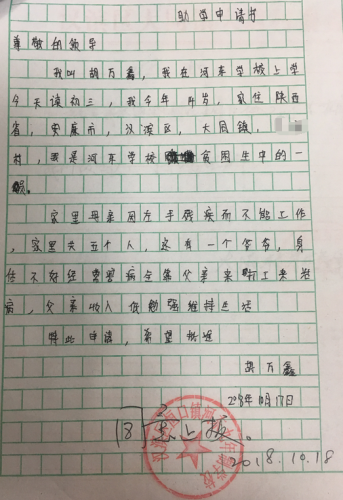 助学申请书
尊敬的领导
我叫胡万鑫，我在河东学校上学
今天读初三，我今年14岁，家住陕西
省，安康市，汉滨区，大同镇，
村，我是河东学校贫困生中的一
员。
家里母亲因左手残疾而不能工作
，家里共五个人，还有一个爷爷，身
体不好经常害病全靠父亲来打工来治
病，父亲收入低勉强维持生活
特此申请，希望批准
胡万鑫
2018年10月17日
2018.10.18